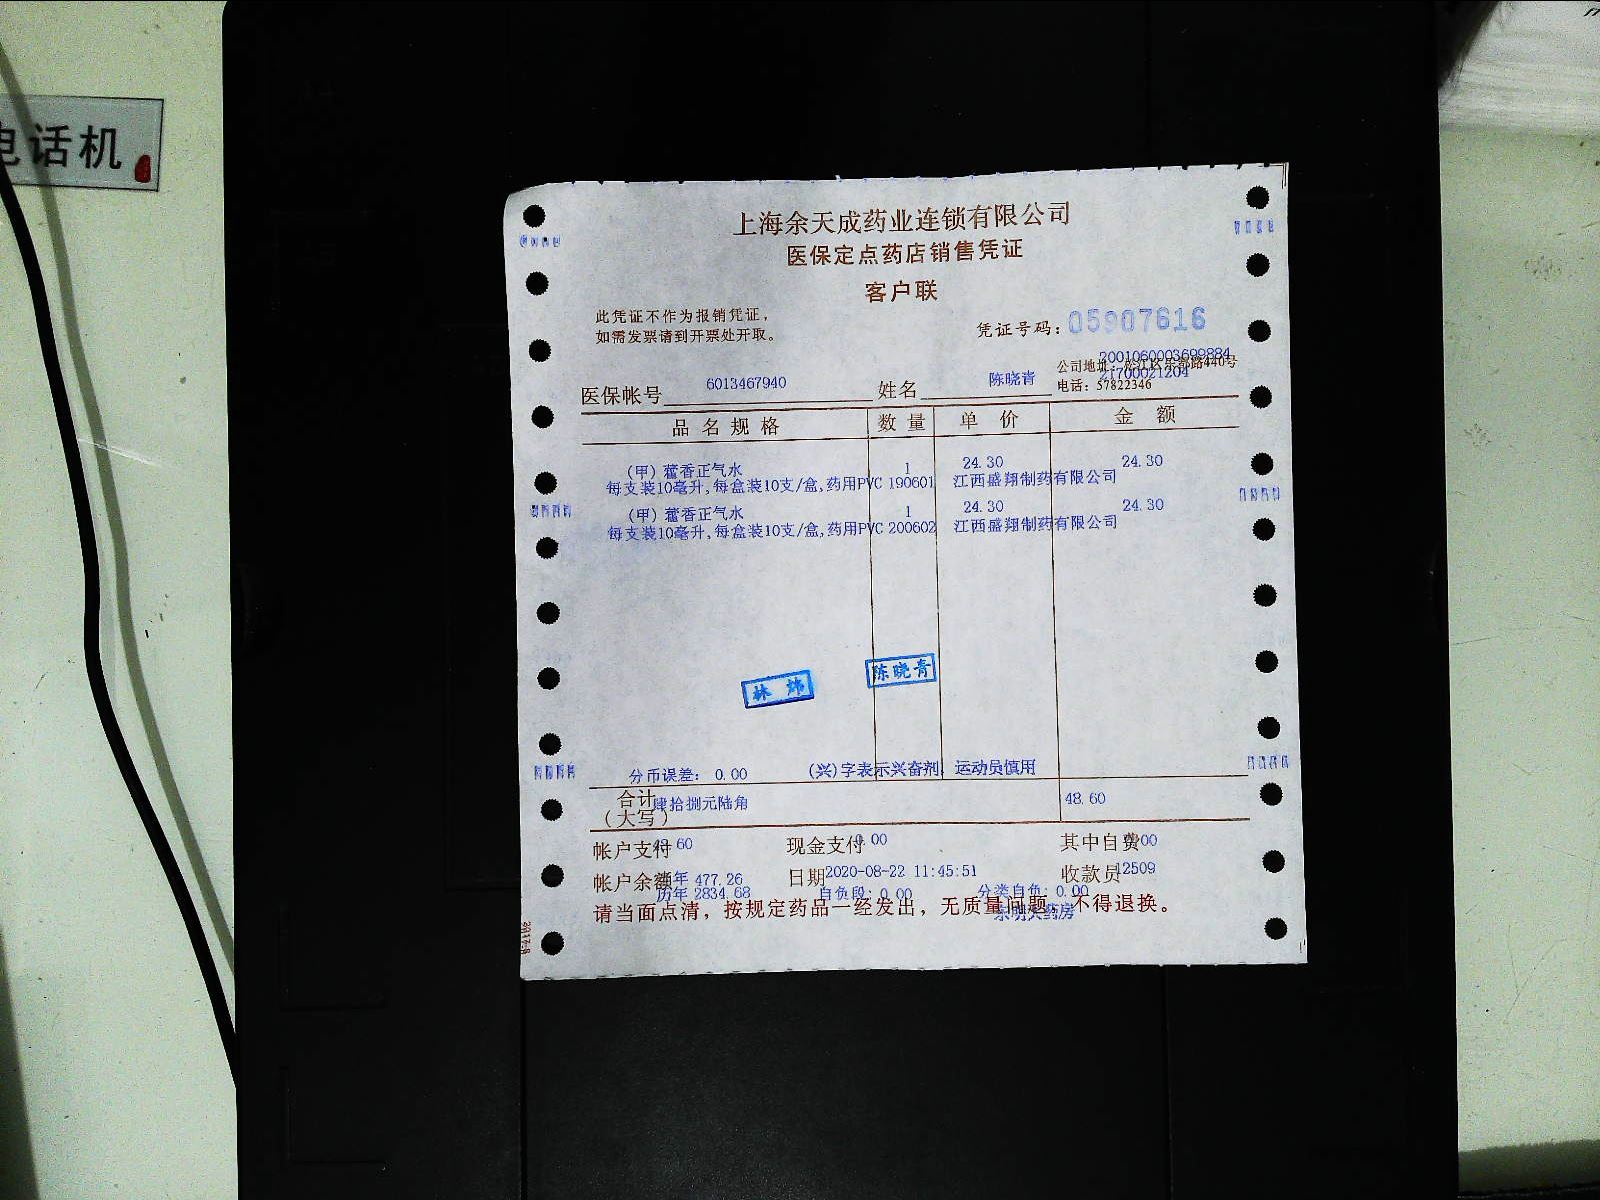 电话机
上海余天成药业连锁有限公司
医保定点药店销售凭证
客户联
此凭证不作为报销凭证，
如需发票请到开票处开取。
凭证号码：05907616
2001060003699884
公司地址：松江区乐都路440号
21700021204
电话：57822346
医保帐号 6013467940 姓名 陈晓青
品名规格 数量 单价 金额
（甲）藿香正气水 1 24.30 24.30
每支装10毫升,每盒装10支/盒,药用PVC 190601 江西盛翔制药有限公司
（甲）藿香正气水 1 24.30 24.30
每支装10毫升,每盒装10支/盒,药用PVC 200602 江西盛翔制药有限公司
林炜 陈晓青
分币误差：0.00 (兴)字表示兴奋剂，运动员慎用
合计 肆拾捌元陆角 48.60
（大写）
帐户支付 48.60 现金支付 0.00 其中自费 0.00
帐户余额 当年 477.26 日期 2020-08-22 11:45:51 收款员 12509
历年 2834.68 自负段：0.00 分类自负：0.00
请当面点清，按规定药品一经发出，无质量问题，不得退换。
2017.8